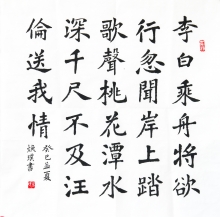 李白乘舟將欲
行忽聞岸上踏
歌聲桃花潭水
深千尺不及汪
倫送我情
癸巳孟夏
書